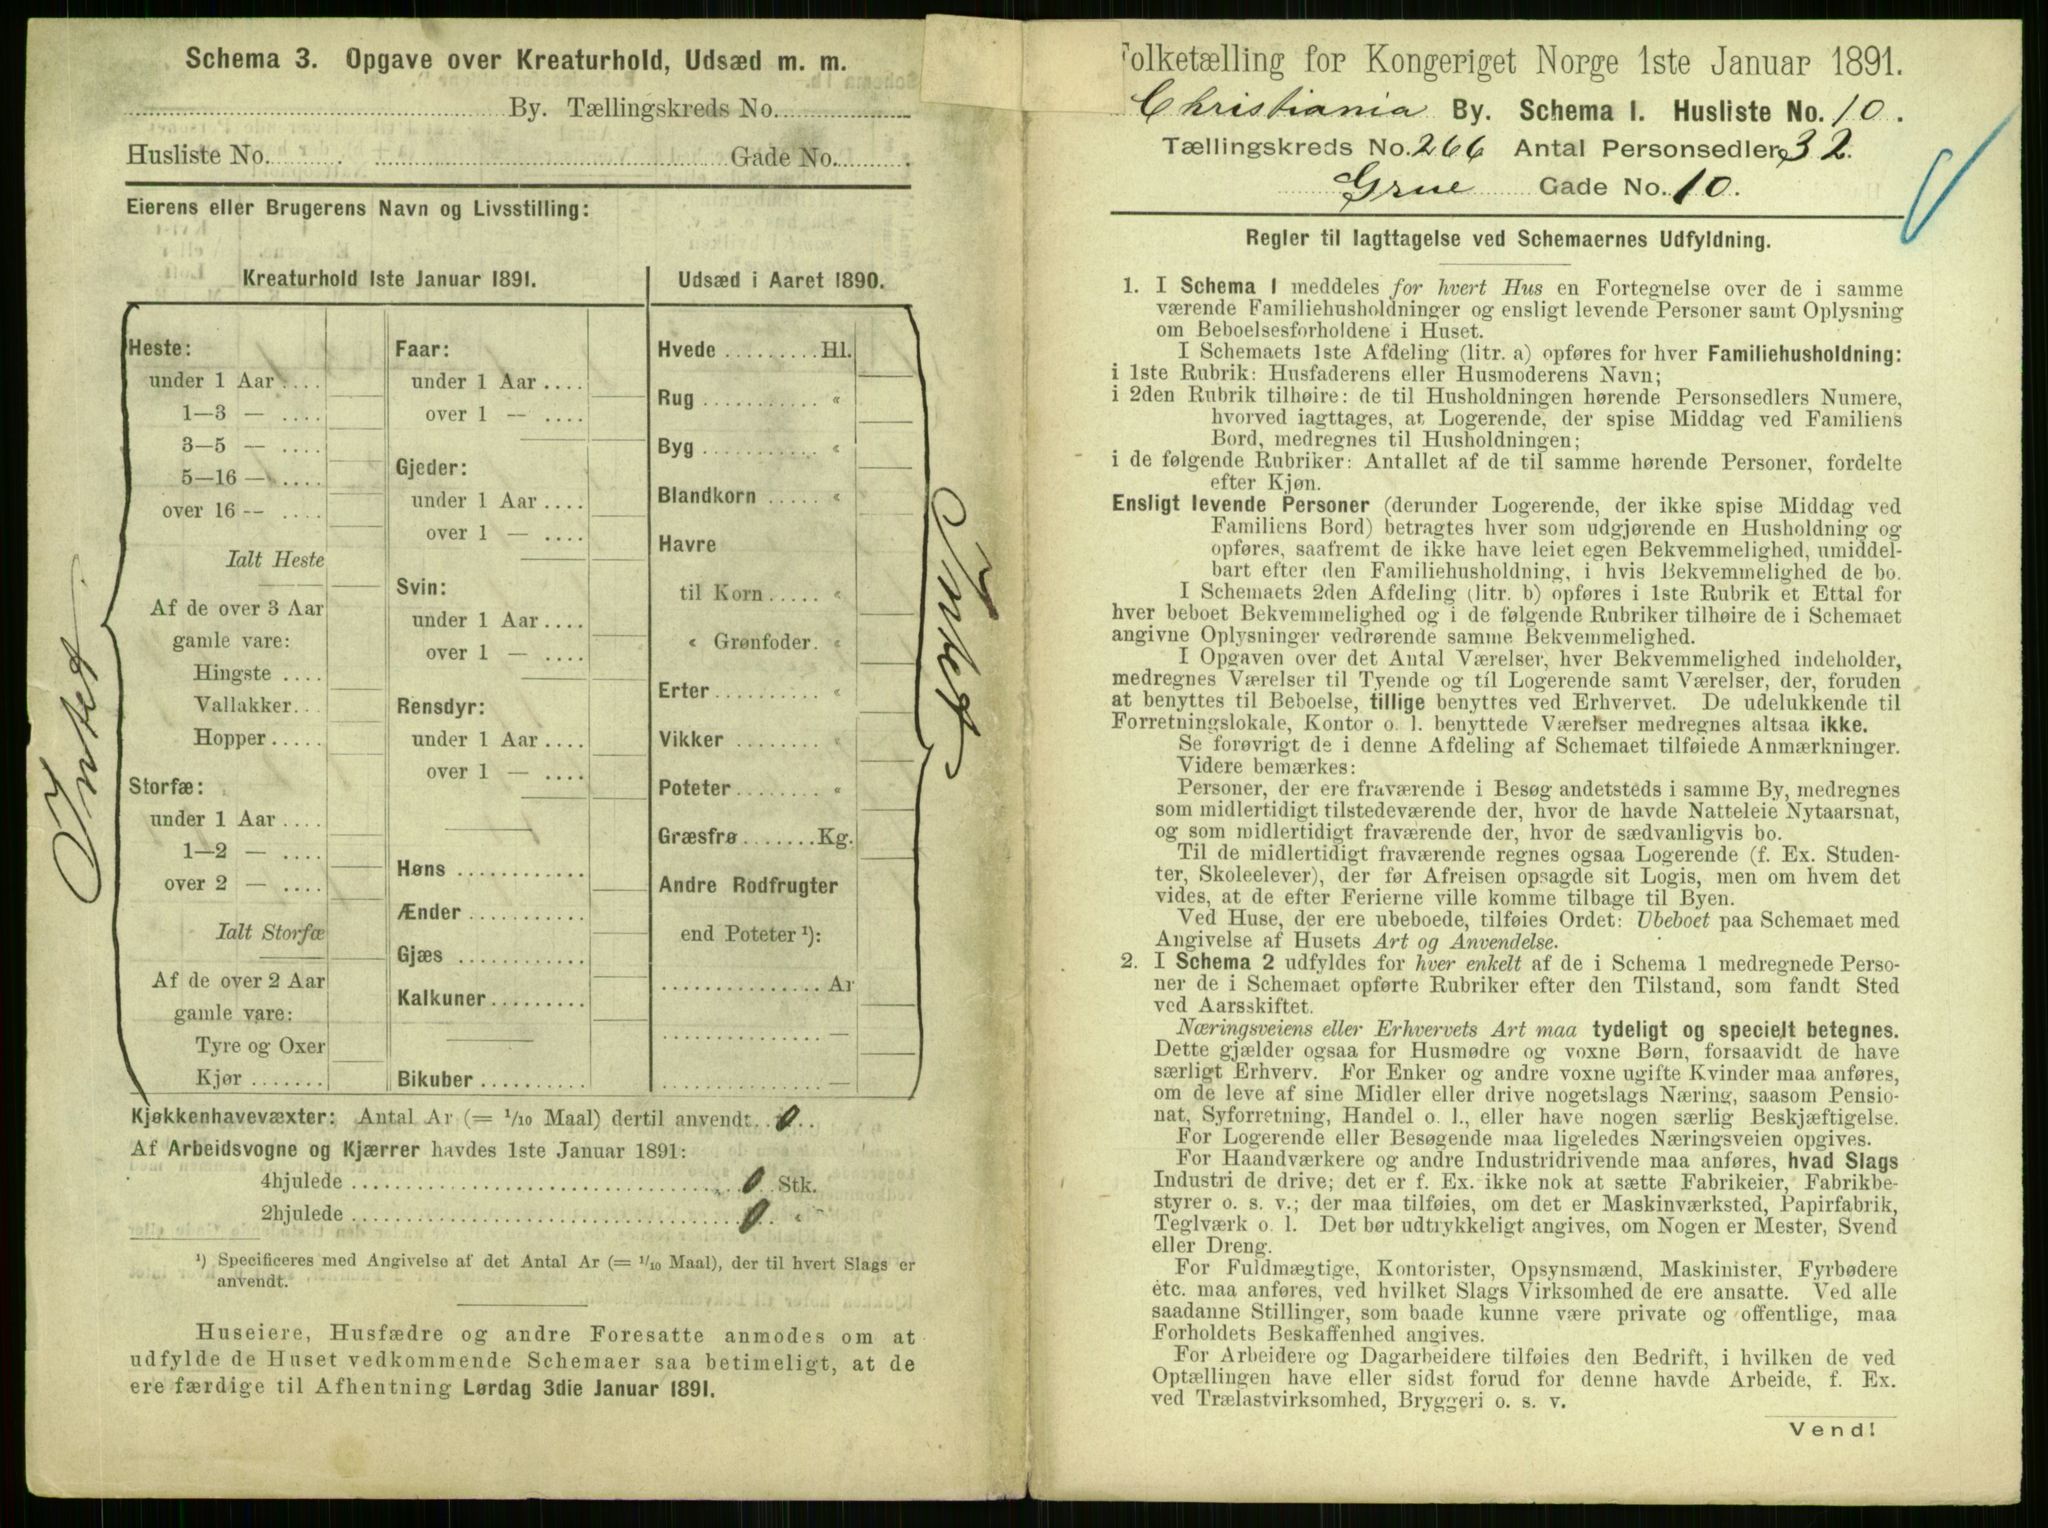 Schema 3. Opgave over Kreaturhold, Udsæd m. m.
By. Tællingskreds No.
Husliste No. Gade No.
Eierens eller Brugerens Navn og Livsstilling:
Kreaturhold 1ste Januar 1891.
Heste:
under 1 Aar
1—3 —
3—5 —
5—16 —
over 16 —
Ialt Heste
Af de over 3 Aar
gamle vare:
Hingste
Vallakker
Hopper
Storfæ:
under 1 Aar
1—2 —
over 2 —
Ialt Storfæ
Af de over 2 Aar
gamle vare:
Tyre og Oxer
Kjør
Intet
Faar:
under 1 Aar
over 1 —
Gjeder:
under 1 Aar
over 1 —
Svin:
under 1 Aar
over 1 —
Rensdyr:
under 1 Aar
over 1 —
Høns
Ænder
Gjæs
Kalkuner
Bikuber
Udsæd i Aaret 1890.
Hvede Hl.
Rug «
Byg «
Blandkorn «
Havre
til Korn «
« Grønfoder «
Erter «
Vikker «
Poteter «
Græsfrø Kg.
Andre Rodfrugter
end Poteter ¹):
Ar
—
—
Intet
Kjøkkenhavevæxter: Antal Ar (= 1/10 Maal) dertil anvendt 0
Af Arbeidsvogne og Kjærrer havdes 1ste Januar 1891:
4hjulede 0 Stk.
2hjulede 0 «
¹) Specificeres med Angivelse af det Antal Ar (= 1/10 Maal), der til hvert Slags er
anvendt.
Huseiere, Husfædre og andre Foresatte anmodes om at
udfylde de Huset vedkommende Schemaer saa betimeligt, at de
ere færdige til Afhentning Lørdag 3die Januar 1891.
Folketælling for Kongeriget Norge 1ste Januar 1891.
Christiania By. Schema I. Husliste No. 10.
Tællingskreds No. 266 Antal Personsedler 32.
Grue Gade No. 10.
Regler til Iagttagelse ved Schemaernes Udfyldning.
1. I Schema I meddeles for hvert Hus en Fortegnelse over de i samme
værende Familiehusholdninger og ensligt levende Personer samt Oplysning
om Beboelsesforholdene i Huset.
I Schemaets 1ste Afdeling (litr. a) opføres for hver Familiehusholdning:
i 1ste Rubrik: Husfaderens eller Husmoderens Navn;
i 2den Rubrik tilhøire: de til Husholdningen hørende Personsedlers Numere,
hvorved iagttages, at Logerende, der spise Middag ved Familiens
Bord, medregnes til Husholdningen;
i de følgende Rubriker: Antallet af de til samme hørende Personer, fordelte
efter Kjøn.
Ensligt levende Personer (derunder Logerende, der ikke spise Middag ved
Familiens Bord) betragtes hver som udgjørende en Husholdning og
opføres, saafremt de ikke have leiet egen Bekvemmelighed, umiddel-
bart efter den Familiehusholdning, i hvis Bekvemmelighed de bo.
I Schemaets 2den Afdeling (litr. b) opføres i 1ste Rubrik et Ettal for
hver beboet Bekvemmelighed og i de følgende Rubriker tilhøire de i Schemaet
angivne Oplysninger vedrørende samme Bekvemmelighed.
I Opgaven over det Antal Værelser, hver Bekvemmelighed indeholder,
medregnes Værelser til Tyende og til Logerende samt Værelser, der, foruden
at benyttes til Beboelse, tillige benyttes ved Erhvervet. De udelukkende til
Forretningslokale, Kontor o. l. benyttede Værelser medregnes altsaa ikke.
Se forøvrigt de i denne Afdeling af Schemaet tilføiede Anmærkninger.
Videre bemærkes:
Personer, der ere fraværende i Besøg andetsteds i samme By, medregnes
som midlertidigt tilstedeværende der, hvor de havde Natteleie Nytaarsnat,
og som midlertidigt fraværende der, hvor de sædvanligvis bo.
Til de midlertidigt fraværende regnes ogsaa Logerende (f. Ex. Studen-
ter, Skoleelever), der før Afreisen opsagde sit Logis, men om hvem det
vides, at de efter Ferierne ville komme tilbage til Byen.
Ved Huse, der ere ubeboede, tilføies Ordet: Ubeboet paa Schemaet med
Angivelse af Husets Art og Anvendelse.
2. I Schema 2 udfyldes for hver enkelt af de i Schema 1 medregnede Perso-
ner de i Schemaet opførte Rubriker efter den Tilstand, som fandt Sted
ved Aarsskiftet.
Næringsveiens eller Erhvervets Art maa tydeligt og specielt betegnes.
Dette gjælder ogsaa for Husmødre og voxne Børn, forsaavidt de have
særligt Erhverv. For Enker og andre voxne ugifte Kvinder maa anføres,
om de leve af sine Midler eller drive nogetslags Næring, saasom Pensio-
nat, Syforretning, Handel o. l., eller have nogen særlig Beskjæftigelse.
For Logerende eller Besøgende maa ligeledes Næringsveien opgives.
For Haandværkere og andre Industridrivende maa anføres, hvad Slags
Industri de drive; det er f. Ex. ikke nok at sætte Fabrikeier, Fabrikbe-
styrer o. s. v.; der maa tilføies, om det er Maskinværksted, Papirfabrik,
Teglværk o. l. Det bør udtrykkeligt angives, om Nogen er Mester, Svend
eller Dreng.
For Fuldmægtige, Kontorister, Opsynsmænd, Maskinister, Fyrbødere
etc. maa anføres, ved hvilket Slags Virksomhed de ere ansatte. Ved alle
saadanne Stillinger, som baade kunne være private og offentlige, maa
Forholdets Beskaffenhed angives.
For Arbeidere og Dagarbeidere tilføies den Bedrift, i hvilken de ved
Optællingen have eller sidst forud for denne havde Arbeide, f. Ex.
ved Trælastvirksomhed, Bryggeri o. s. v.
Vend!